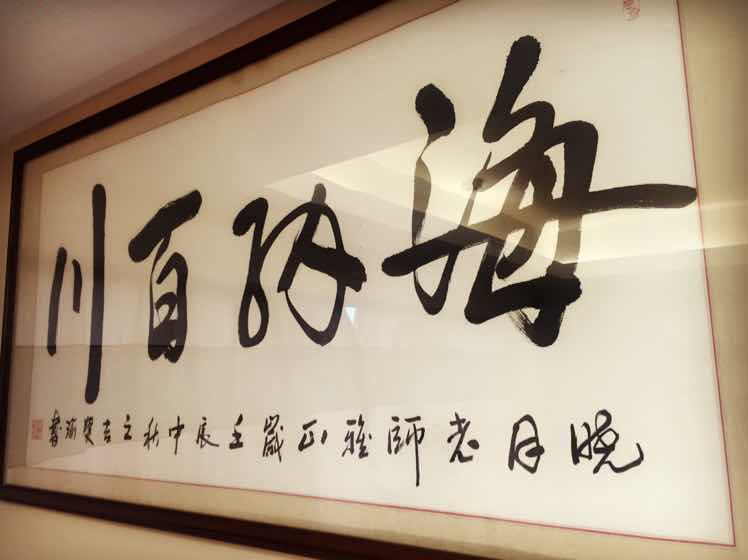 海納百川
晓月老師雅正歲壬辰中秋之吉